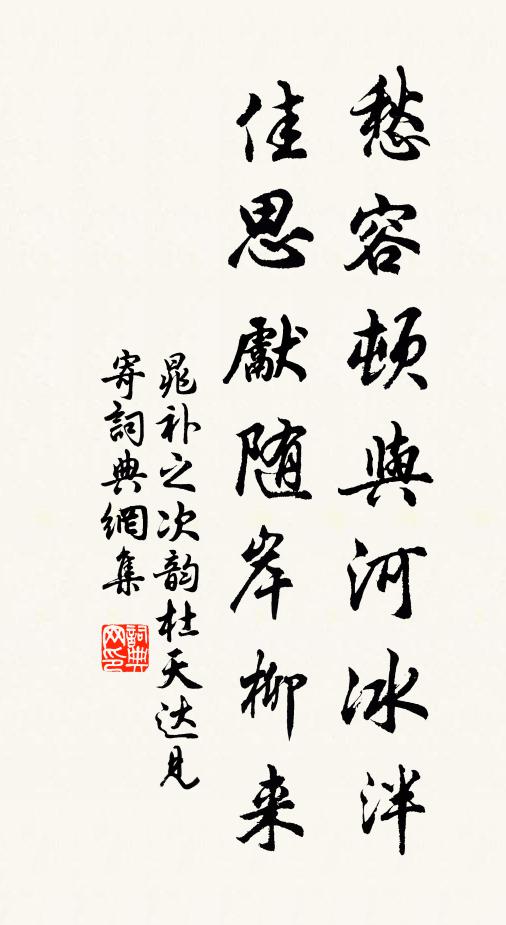 愁容頓與河冰泮
佳思獻随岸柳来
晁补之次韵杜天达見
寄詞典網集
詞典網印